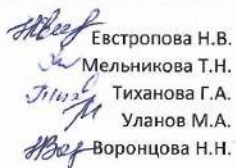 Евстропова Н.В.
Мельникова Т.Н.
Тиханова Г.А.
Уланов М.А.
Воронцова Н.Н.